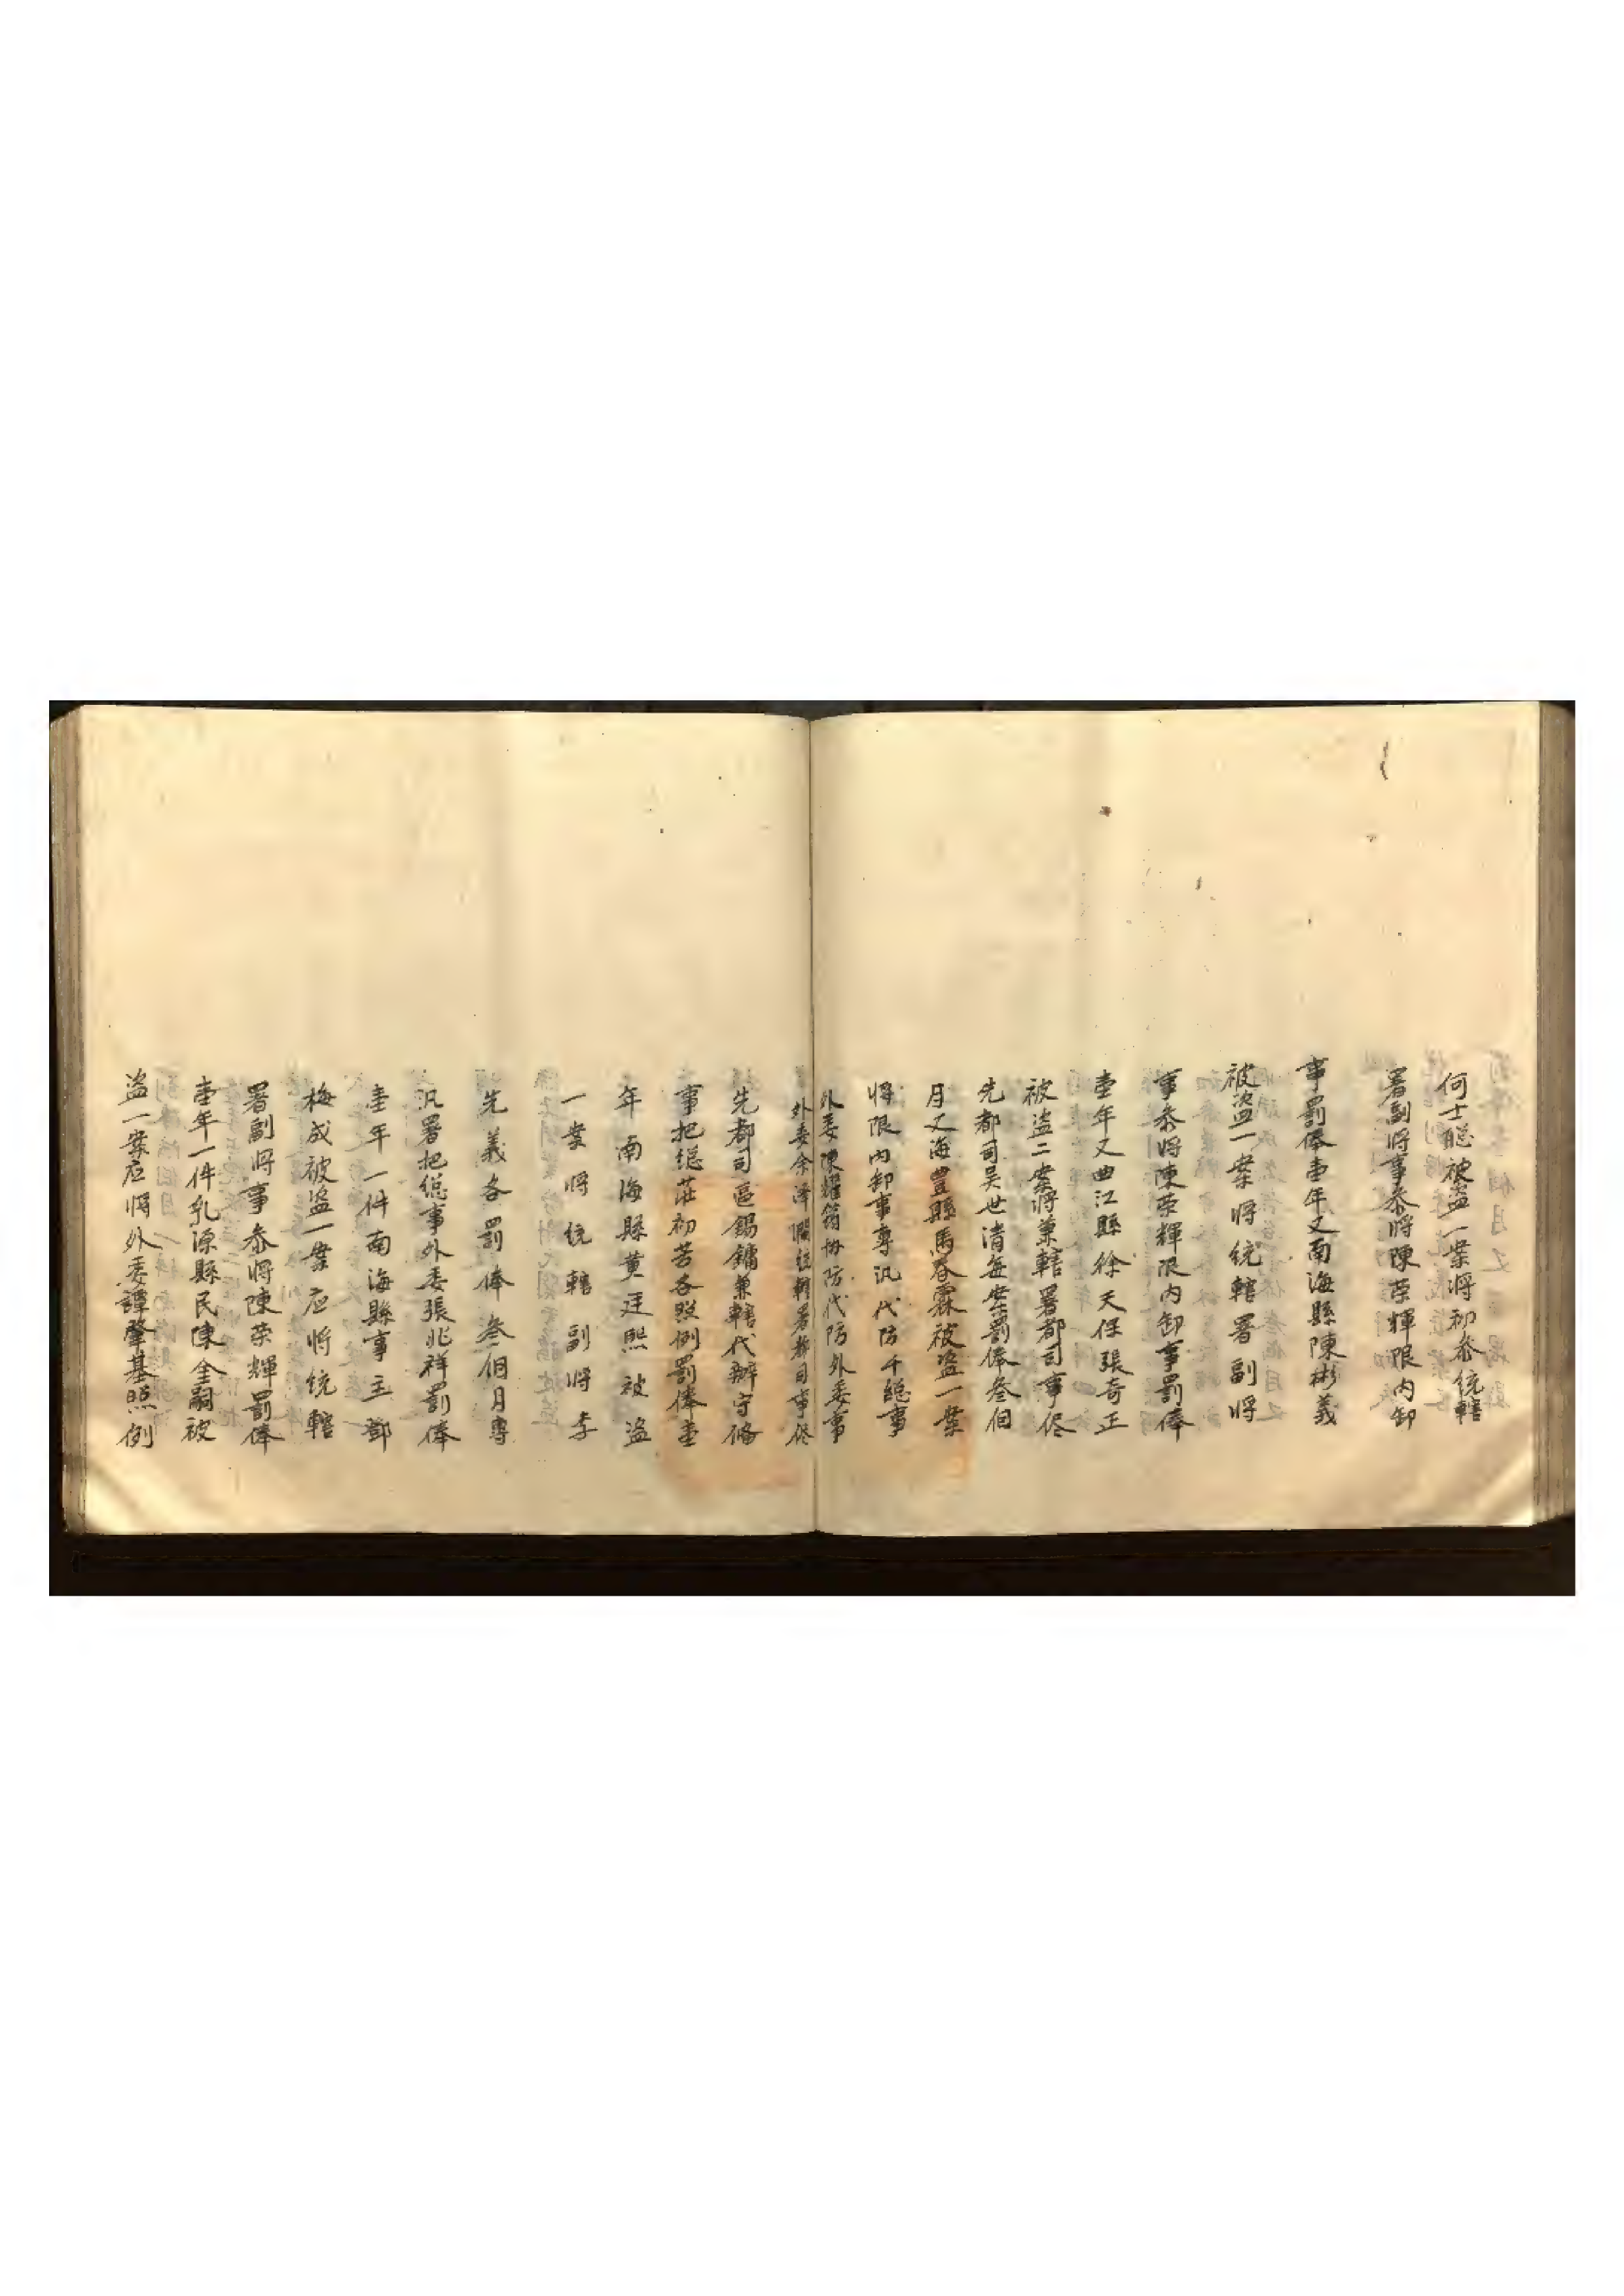 何士聪被盗一案将初叅统轄
署副将事叅将陳荣輝限内卸
事罰俸壹年又南海縣陳彬義
被盗一案将统轄署副将
事叅将陳荣輝限内卸事罰俸
壹年又曲江縣徐天保張奇正
被盗二案将兼轄署都司事侭
先都司吴世清每案罰俸叁個
月又海豊縣馬春霖被盗一案
将限内卸事專汛代防千總事
外委陳耀協防代防外委事
外委余泽轄署都司事侭
先都司區錫鏞兼轄代辦守俻
事把總莊初苦各照例罰俸壹
年南海縣黄廷熙被盗
一案将统轄副将李
先義各罰俸叁個月專
汛署把總事外委張兆祥罰俸
壹年一件南海縣事主鄧
梅成被盗一案应将统轄
署副将事叅将陳荣輝罰俸
壹年一件乳源縣民陳金嗣被
盗一案应将外委譚肇基照例